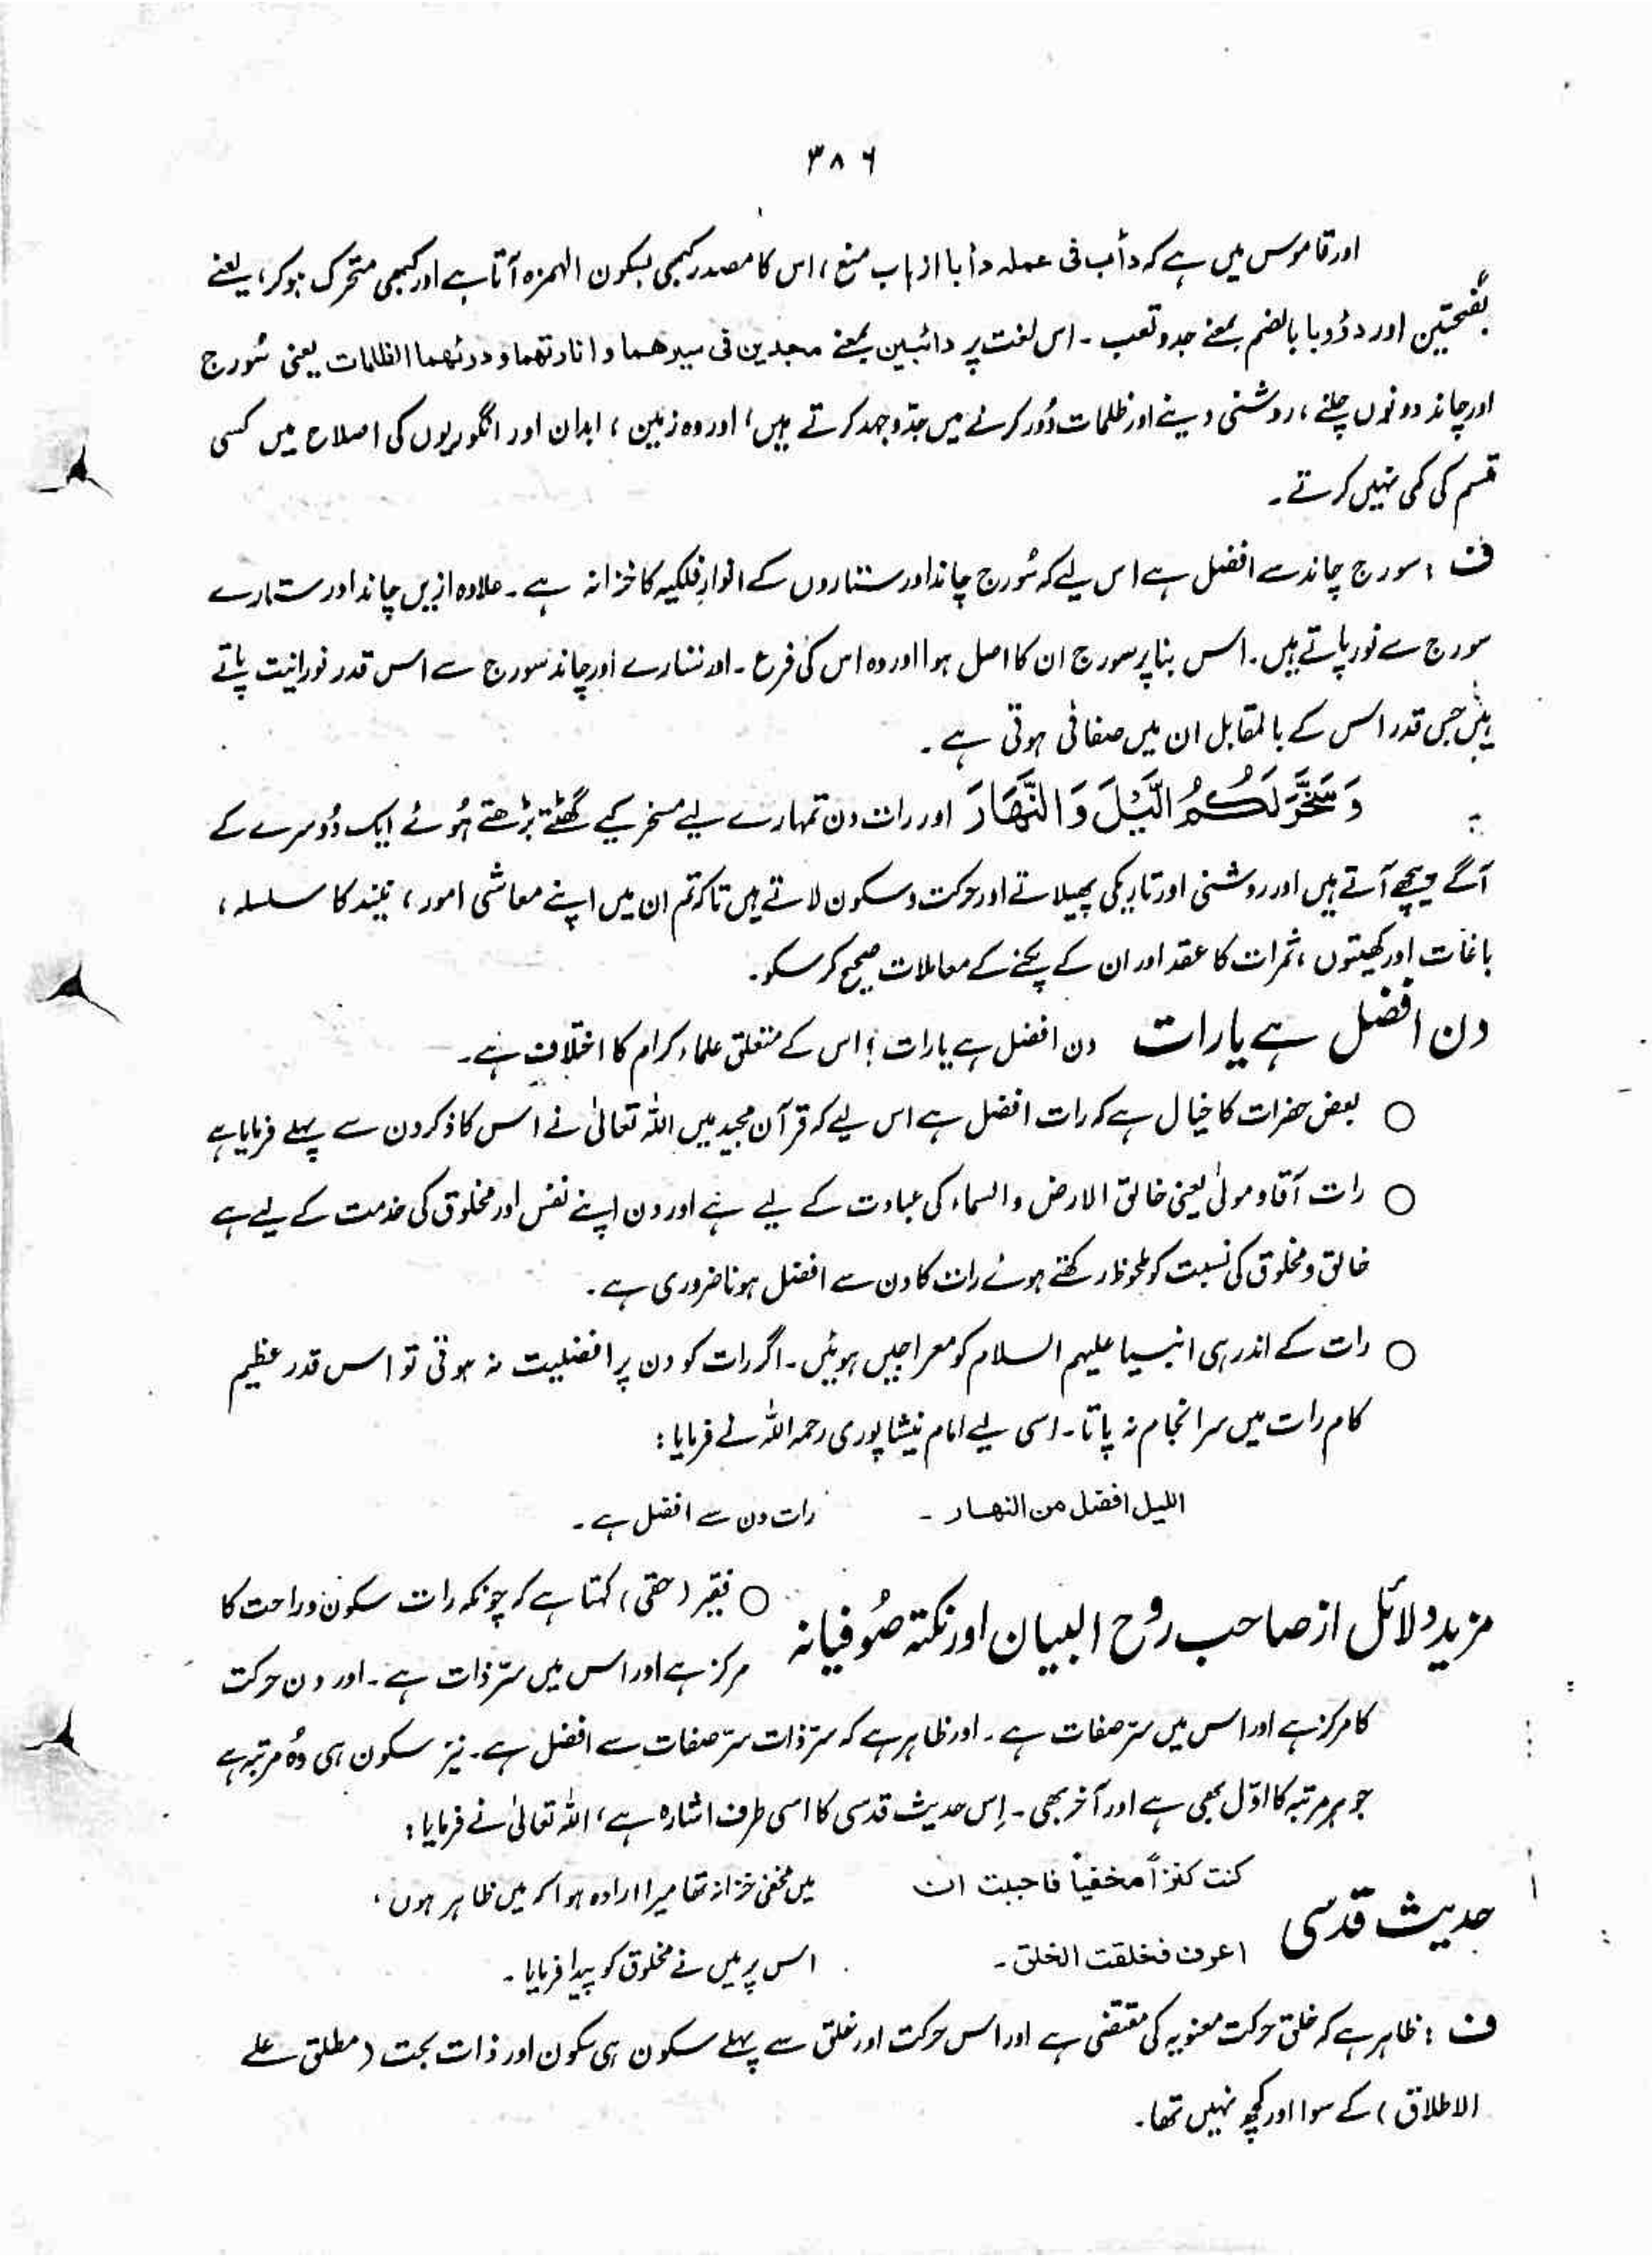 ۳۸۶
اور قاموس میں ہے کہ دأب فی عملہ دأبا از باب منع، اس کا مصدر کبھی بسکون الہمزہ آتا ہے اور کبھی متحرک ہوکر، یعنے
بفتحتین اور دؤوبا بالضم بمعنے جد و تعب ۔ اس لغت پر دائبین بمعنے مجدین فی سیرھما و انارتھما و درئھما الظلمات یعنی سُورج
اور چاند دونوں چلنے، روشنی دینے اور ظلمات دُور کرنے میں جدّ و جہد کرتے ہیں، اور وہ زمین، ابدان اور انگوریوں کی اصلاح میں کسی
قسم کی کمی نہیں کرتے ۔
ف : سورج چاند سے افضل ہے اس لیے کہ سُورج چاند اور ستاروں کے انوارِ فلکیہ کا خزانہ ہے ۔ علاوہ ازیں چاند اور ستارے
سورج سے نور پاتے ہیں ۔ اس بنا پر سورج ان کا اصل ہوا اور وہ اس کی فرع ۔ اور ستارے اور چاند سورج سے اس قدر نورانیت پاتے
ہیں جس قدر اس کے بالمقابل ان میں صفائی ہوتی ہے ۔
وَ سَخَّرَ لَكُمُ الَّيْلَ وَ النَّهَارَ اور رات دن تمہارے لیے مسخر کیے گھٹتے بڑھتے ہُوئے ایک دُوسرے کے
آگے پیچھے آتے ہیں اور روشنی اور تاریکی پھیلاتے اور حرکت و سکون لاتے ہیں تاکہ تم ان میں اپنے معاشی امور، نیند کا سلسلہ،
باغات اور کھیتوں، ثمرات کا عقد اور ان کے پکنے کے معاملات صحیح کر سکو ۔
دن افضل ہے یا رات دن افضل ہے یا رات ؟ اس کے متعلق علماء کرام کا اختلاف ہے ۔
○ بعض حضرات کا خیال ہے کہ رات افضل ہے اس لیے کہ قرآن مجید میں اللہ تعالیٰ نے اس کا ذکر دن سے پہلے فرمایا ہے
○ رات آقا و مولیٰ یعنی خالق الارض والسماء کی عبادت کے لیے ہے اور دن اپنے نفس اور مخلوق کی خدمت کے لیے ہے
خالق و مخلوق کی نسبت کو ملحوظ رکھتے ہوئے رات کا دن سے افضل ہونا ضروری ہے ۔
○ رات کے اندر ہی انبیا علیہم السلام کو معراجیں ہوئیں ۔ اگر رات کو دن پر افضلیت نہ ہوتی تو اس قدر عظیم
کام رات میں سرانجام نہ پاتا ۔ اسی لیے امام نیشاپوری رحمہ اللہ نے فرمایا :
اللیل افضل من النھار ۔ رات دن سے افضل ہے ۔
مزید دلائل از صاحب روح البیان اور نکتہ صُوفیانہ ○ فقیر (حقی) کہتا ہے کہ چونکہ رات سکون و راحت کا
مرکز ہے اور اس میں سرّ ذات ہے ۔ اور دن حرکت
کا مرکز ہے اور اس میں سرّ صفات ہے ۔ اور ظاہر ہے کہ سرّ ذات سرّ صفات سے افضل ہے ۔ نیز سکون ہی وُہ مرتبہ ہے
جو ہر مرتبہ کا اوّل بھی ہے اور آخر بھی ۔ اِس حدیث قدسی کا اسی طرف اشارہ ہے، اللہ تعالیٰ نے فرمایا :
کنت کنزاً مخفیاً فاحببت ان میں مخفی خزانہ تھا میرا ارادہ ہوا کہ میں ظاہر ہوں،
حدیث قدسی
اعرف فخلقت الخلق ۔ اس پر میں نے مخلوق کو پیدا فرمایا ۔
ف : ظاہر ہے کہ خلق حرکت معنویہ کی مقتضی ہے اور اس حرکت اور خلق سے پہلے سکون ہی سکون اور ذات بحت (مطلق علے
الاطلاق) کے سوا اور کچھ نہیں تھا ۔